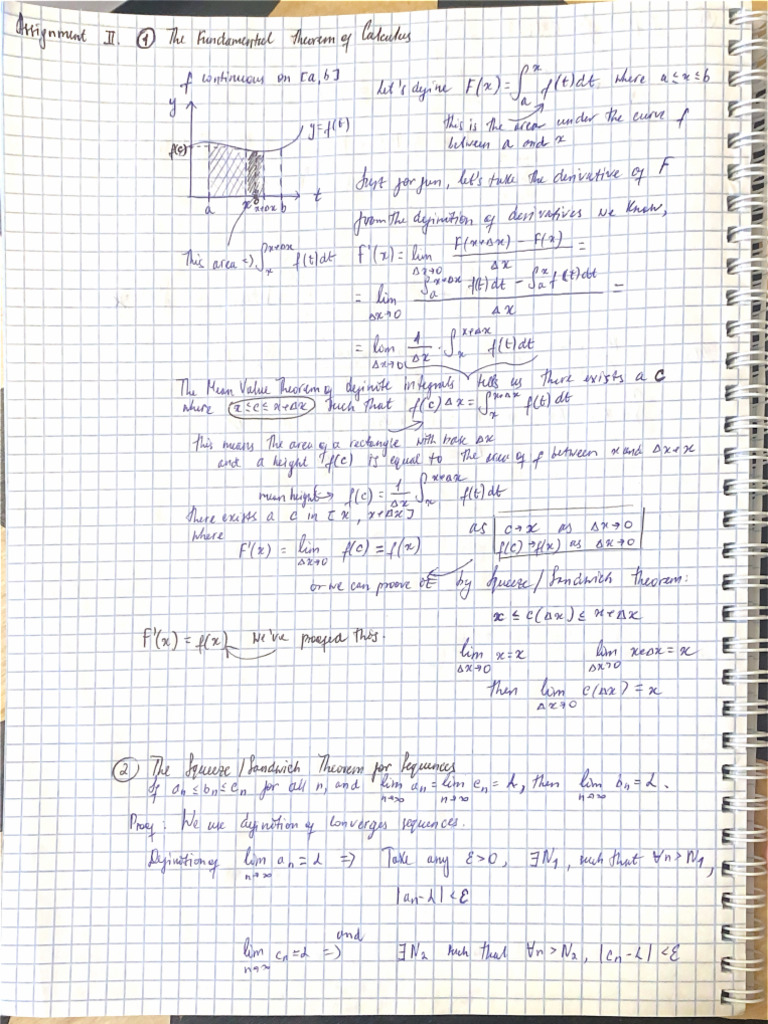 Assignment II. ① The Fundamental Theorem of Calculus
f continuous on [a,b]
Let's define F(x) = ∫_a^x f(t)dt where a≤x≤b
this is the area under the curve f
between a and x
y
y=f(t)
f(c)
a x x+Δx b t
This area => ∫_x^{x+Δx} f(t)dt
Just for fun, let's take the derivative of F
from the definition of derivatives we know,
F'(x) = lim_{Δx→0} (F(x+Δx) - F(x))/Δx =
= lim_{Δx→0} (∫_a^{x+Δx} f(t)dt - ∫_a^x f(t)dt)/Δx =
= lim_{Δx→0} 1/Δx · ∫_x^{x+Δx} f(t)dt
The Mean Value Theorem of definite integrals tells us there exists a c
where x≤c≤x+Δx such that f(c)Δx = ∫_x^{x+Δx} f(t)dt
this means the area of a rectangle with base Δx
and a height f(c) is equal to the area of f between x and Δx+x
mean height → f(c) = 1/Δx ∫_x^{x+Δx} f(t)dt
there exists a c in [x, x+Δx]
where
F'(x) = lim_{Δx→0} f(c) = f(x)
as c→x as Δx→0
f(c)→f(x) as Δx→0
or we can prove it by Squeeze/Sandwich theorem:
x ≤ c(Δx) ≤ x+Δx
F'(x) = f(x) we've proofed this.
lim_{Δx→0} x = x lim_{Δx→0} x+Δx = x
then lim_{Δx→0} c(Δx) = x
② The Squeeze/Sandwich Theorem for Sequences
If a_n ≤ b_n ≤ c_n for all n, and lim_{n→∞} a_n = lim_{n→∞} c_n = L, then lim_{n→∞} b_n = L.
Proof: We use definition of converges sequences.
Definition of lim_{n→∞} a_n = L => Take any ε>0, ∃N_1, such that ∀n>N_1,
|a_n-L|<ε
and
lim_{n→∞} c_n = L => ∃N_2 such that ∀n>N_2, |c_n-L|<ε